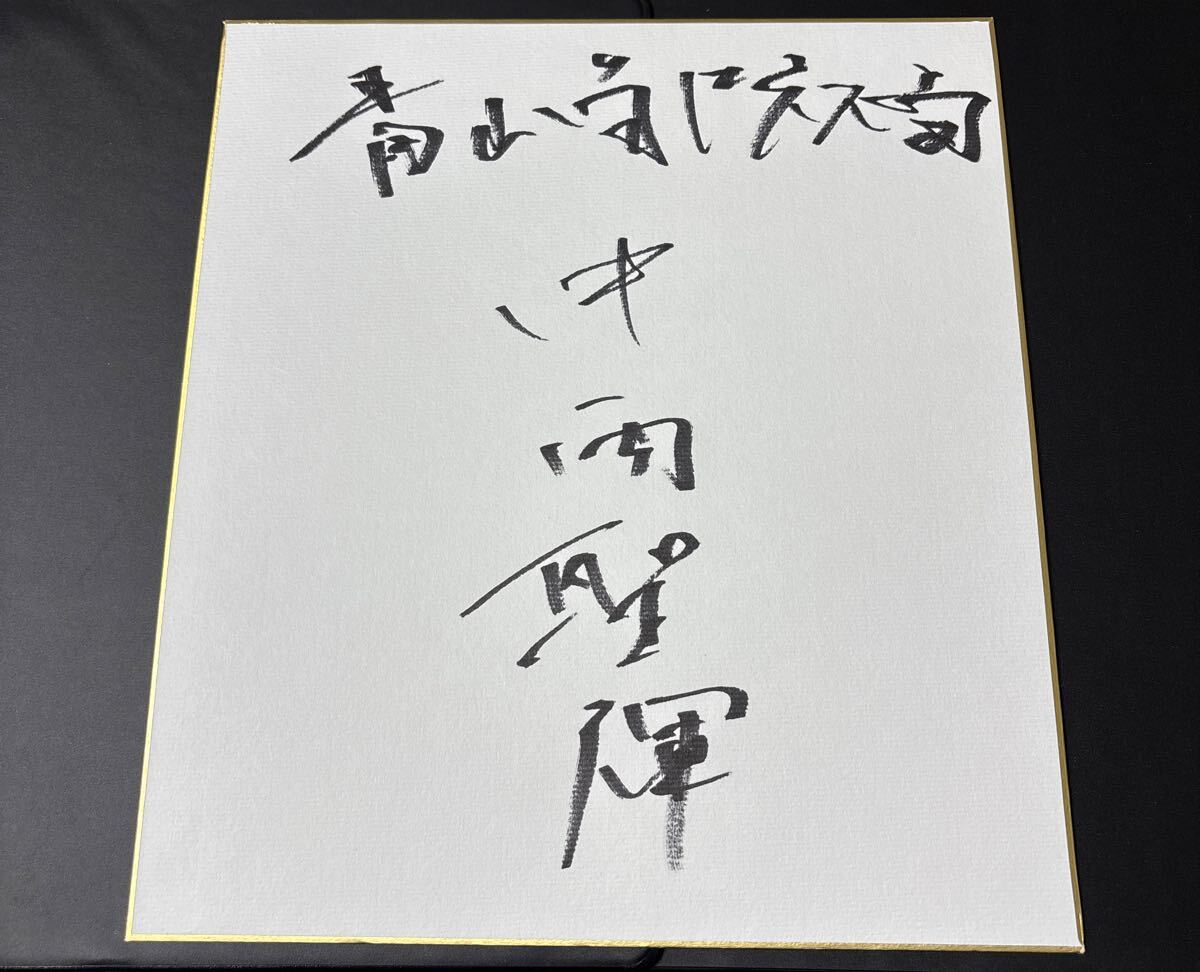 青山学院大学
中西聖輝